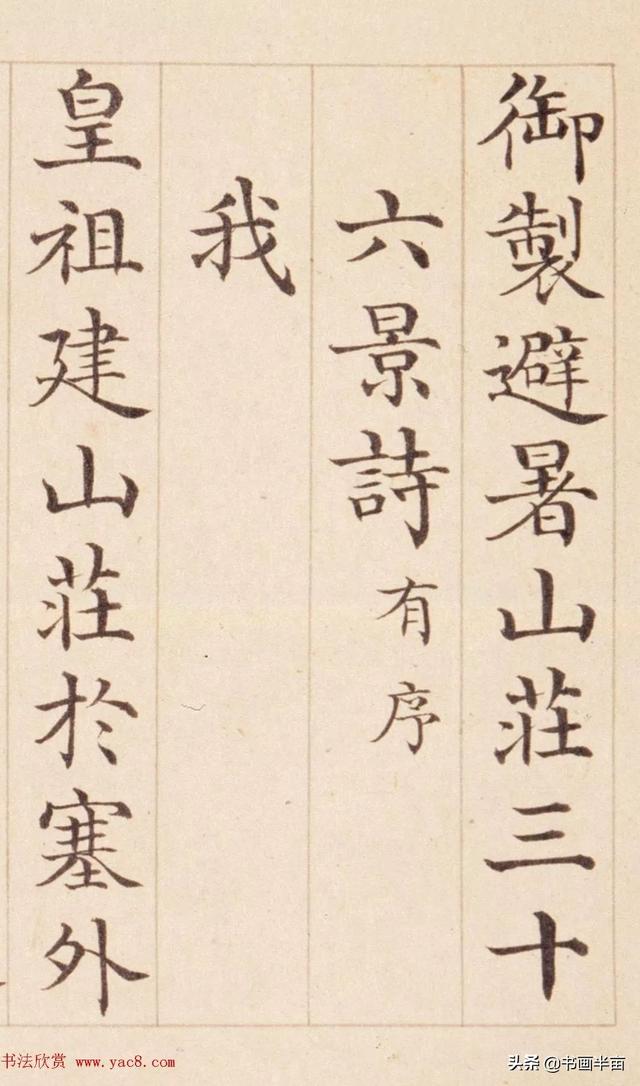 御製避暑山莊三十
六景詩有序
我
皇祖建山莊於塞外
书法欣赏 www.yac8.com
头条 @书画半亩